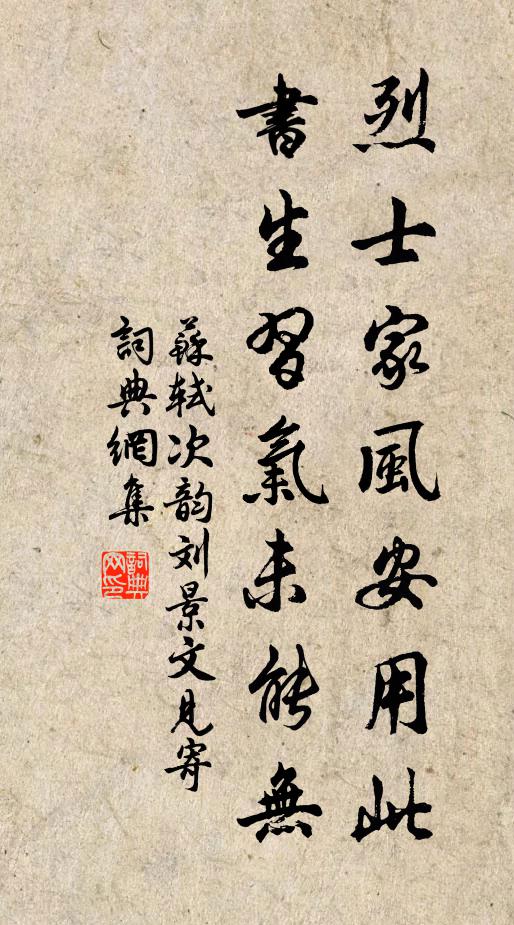 烈士家風安用此
書生習氣未能無
蘇軾次韵刘景文見寄
詞典網集
詞典网印